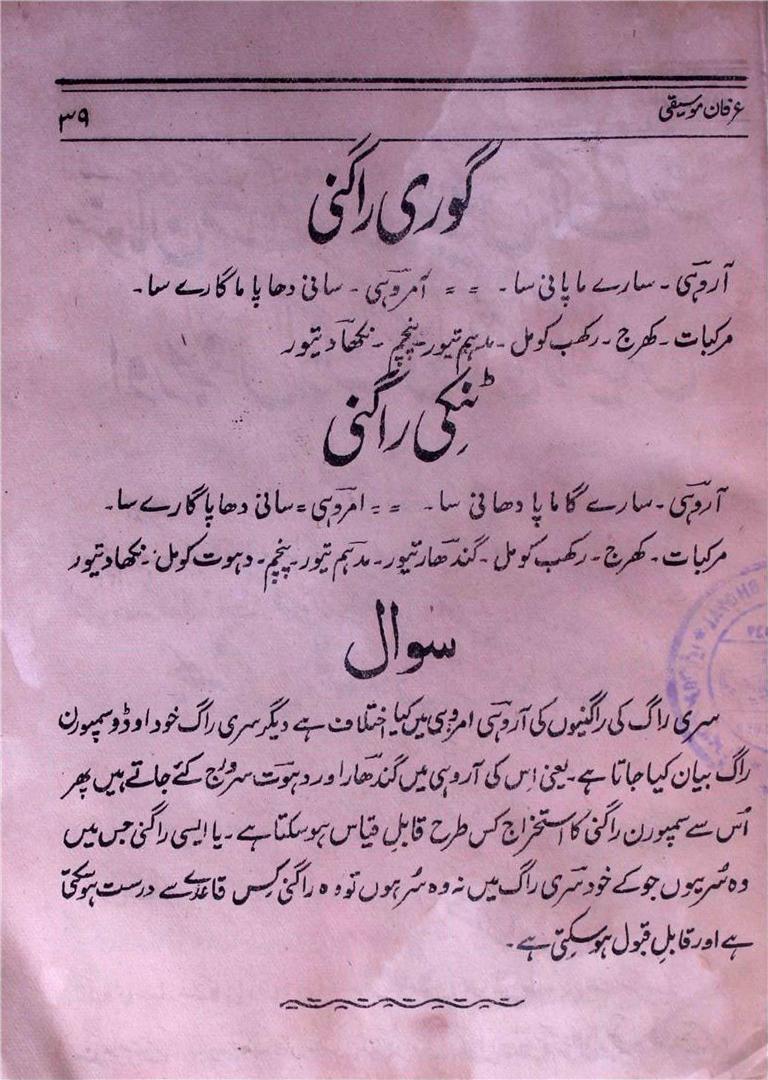 عرفان موسیقی
۳۹
گوری راگنی
آروہی ۔ سا رے ما پا نی سا ۔ = = امروہی ۔ سا نی دھا پا ما گا رے سا ۔
مرکبات ۔ کھرج ۔ رکھب کومل ۔ مدہم تیور ۔ پنچم ۔ نکھاد تیور
ٹنکی راگنی
آروہی ۔ سا رے گا ما پا دھا نی سا ۔ = = امروہی = سا نی دھا پا گا رے سا ۔
مرکبات ۔ کھرج ۔ رکھب کومل ۔ گندھار تیور ۔ مدہم تیور ۔ پنچم ۔ دہوت کومل ۔ نکھاد تیور
سوال
سری راگ کی راگنیوں کی آروہی امروہی میں کیا اختلاف ہے دیگر سری راگ خود اوڈو سمپورن
راگ بیان کیا جاتا ہے ۔ یعنی اس کی آروہی میں گندھار اور دہوت سر ورج کئے جاتے ہیں پھر
اُس سے سمپورن راگنی کا استخراج کس طرح قابلِ قیاس ہو سکتا ہے ۔ یا ایسی راگنی جس میں
وہ سُر ہوں جو کے خود سری راگ میں نہ وہ سر ہوں تو وہ راگنی کِس قاعدے سے درست ہو سکتی
ہے اور قابلِ قبول ہو سکتی ہے ۔